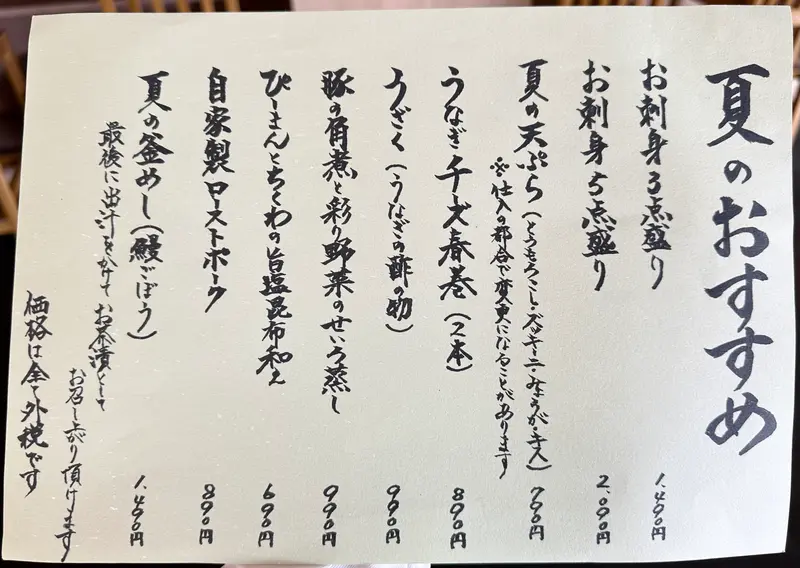 夏のおすすめ
お刺身3点盛り 1,490円
お刺身5点盛り 2,090円
夏の天ぷら(とうもろこし・ズッキーニ・みょうが・手入) 790円
※仕入の都合で変更になることがあります
うなぎチーズ春巻(2本) 890円
うざく(うなぎの酢の物) 990円
豚の角煮と彩り野菜のせいろ蒸し 990円
ぴーまんとちくわの旨塩昆布和え 690円
自家製ローストポーク 890円
夏の釜めし(鰻ごぼう) 1,490円
最後に出汁をかけてお茶漬として
お召し上がり頂けます
価格は全て外税です